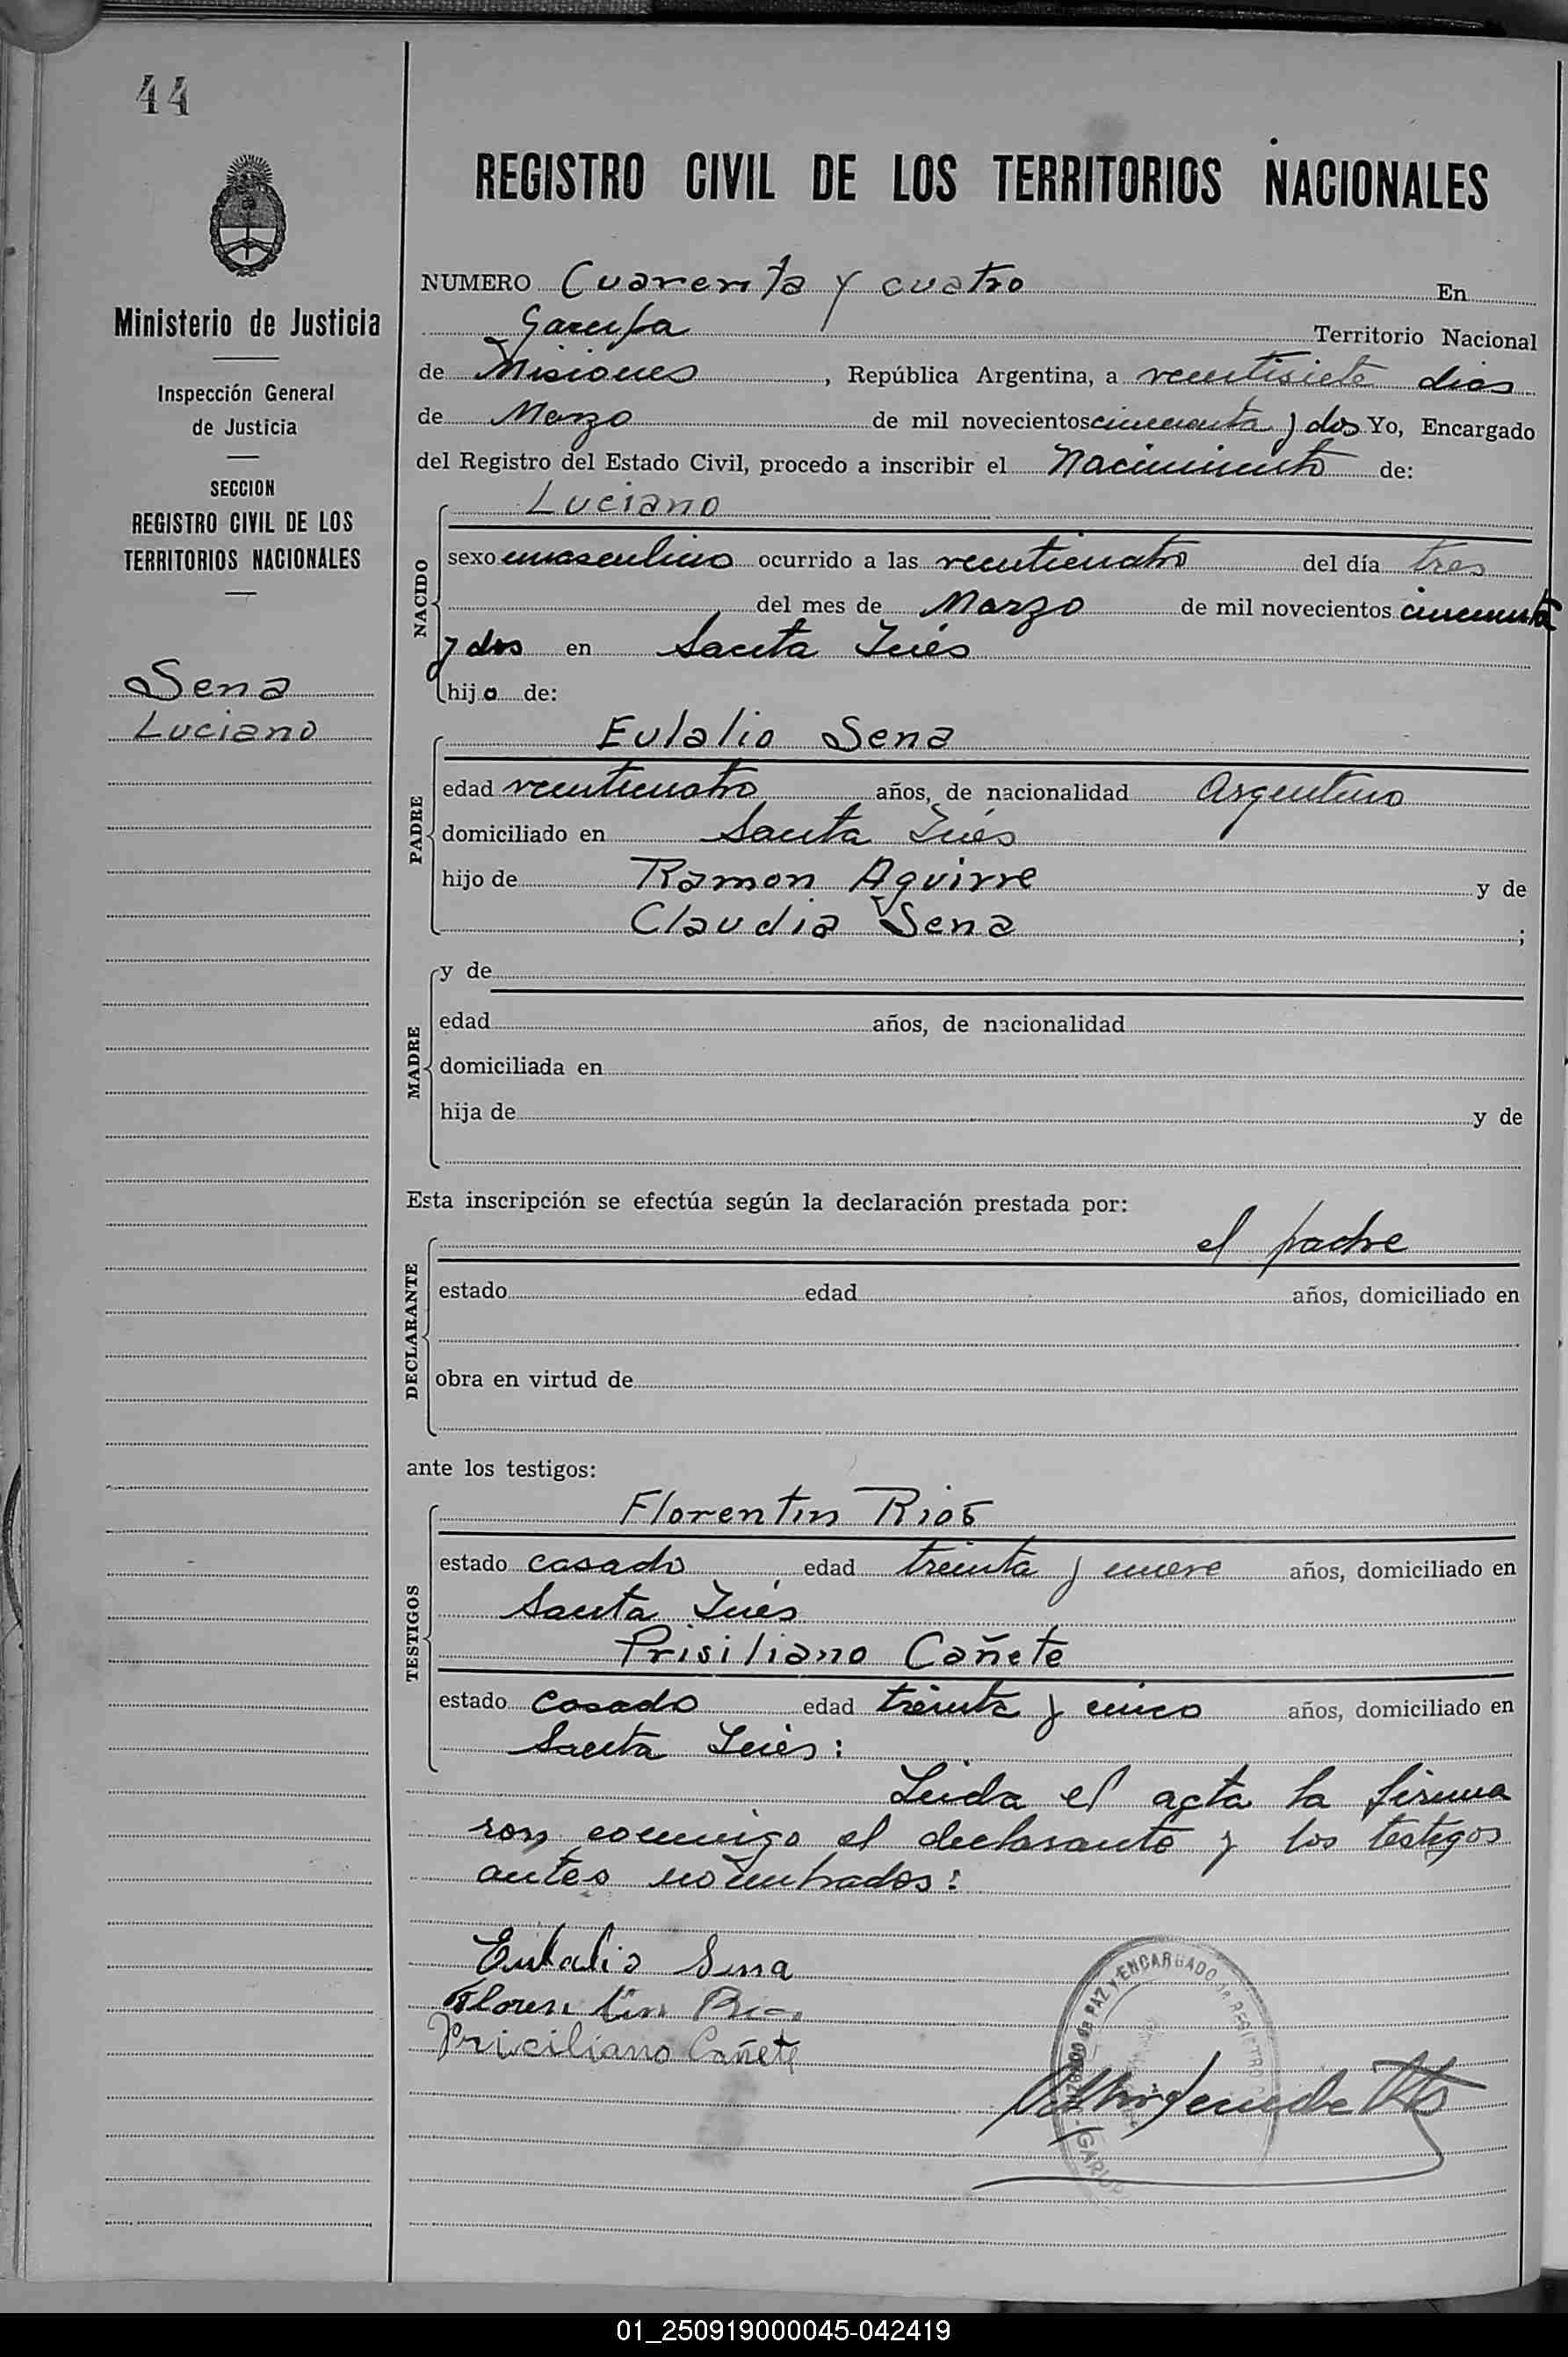 44
Ministerio de Justicia
Inspección General
de Justicia
SECCION
REGISTRO CIVIL DE LOS
TERRITORIOS NACIONALES
Sena
Luciano
REGISTRO CIVIL DE LOS TERRITORIOS NACIONALES
NUMERO Cuarenta y cuatro En
Garupa Territorio Nacional
de Misiones, República Argentina, a veintisiete dias
de Marzo de mil novecientos cincuenta y dos Yo, Encargado
del Registro del Estado Civil, procedo a inscribir el Nacimiento de:
NACIDO
Luciano
sexo masculino ocurrido a las veinticuatro del día tres
del mes de Marzo de mil novecientos cincuenta
y dos en Santa Inés
hijo de:
PADRE
Eulalio Sena
edad veinticuatro años, de nacionalidad Argentino
domiciliado en Santa Inés
hijo de Ramon Aguirre y de
Claudia Sena;
MADRE
y de
edad años, de nacionalidad
domiciliada en
hija de y de
Esta inscripción se efectúa según la declaración prestada por:
DECLARANTE
el padre
estado edad años, domiciliado en
obra en virtud de
ante los testigos:
TESTIGOS
Florentin Rios
estado casado edad treinta y nueve años, domiciliado en
Santa Inés
Prisiliano Cañete
estado casado edad treinta y cinco años, domiciliado en
Santa Inés:
Leida el acta la firma
ron conmigo el declarante y los testigos
antes nombrados:
Eulalio Sena
Florentin Rios
Priciliano Cañete
JUZGADO DE PAZ Y ENCARGADO DE REGISTRO
01_250919000045-042419